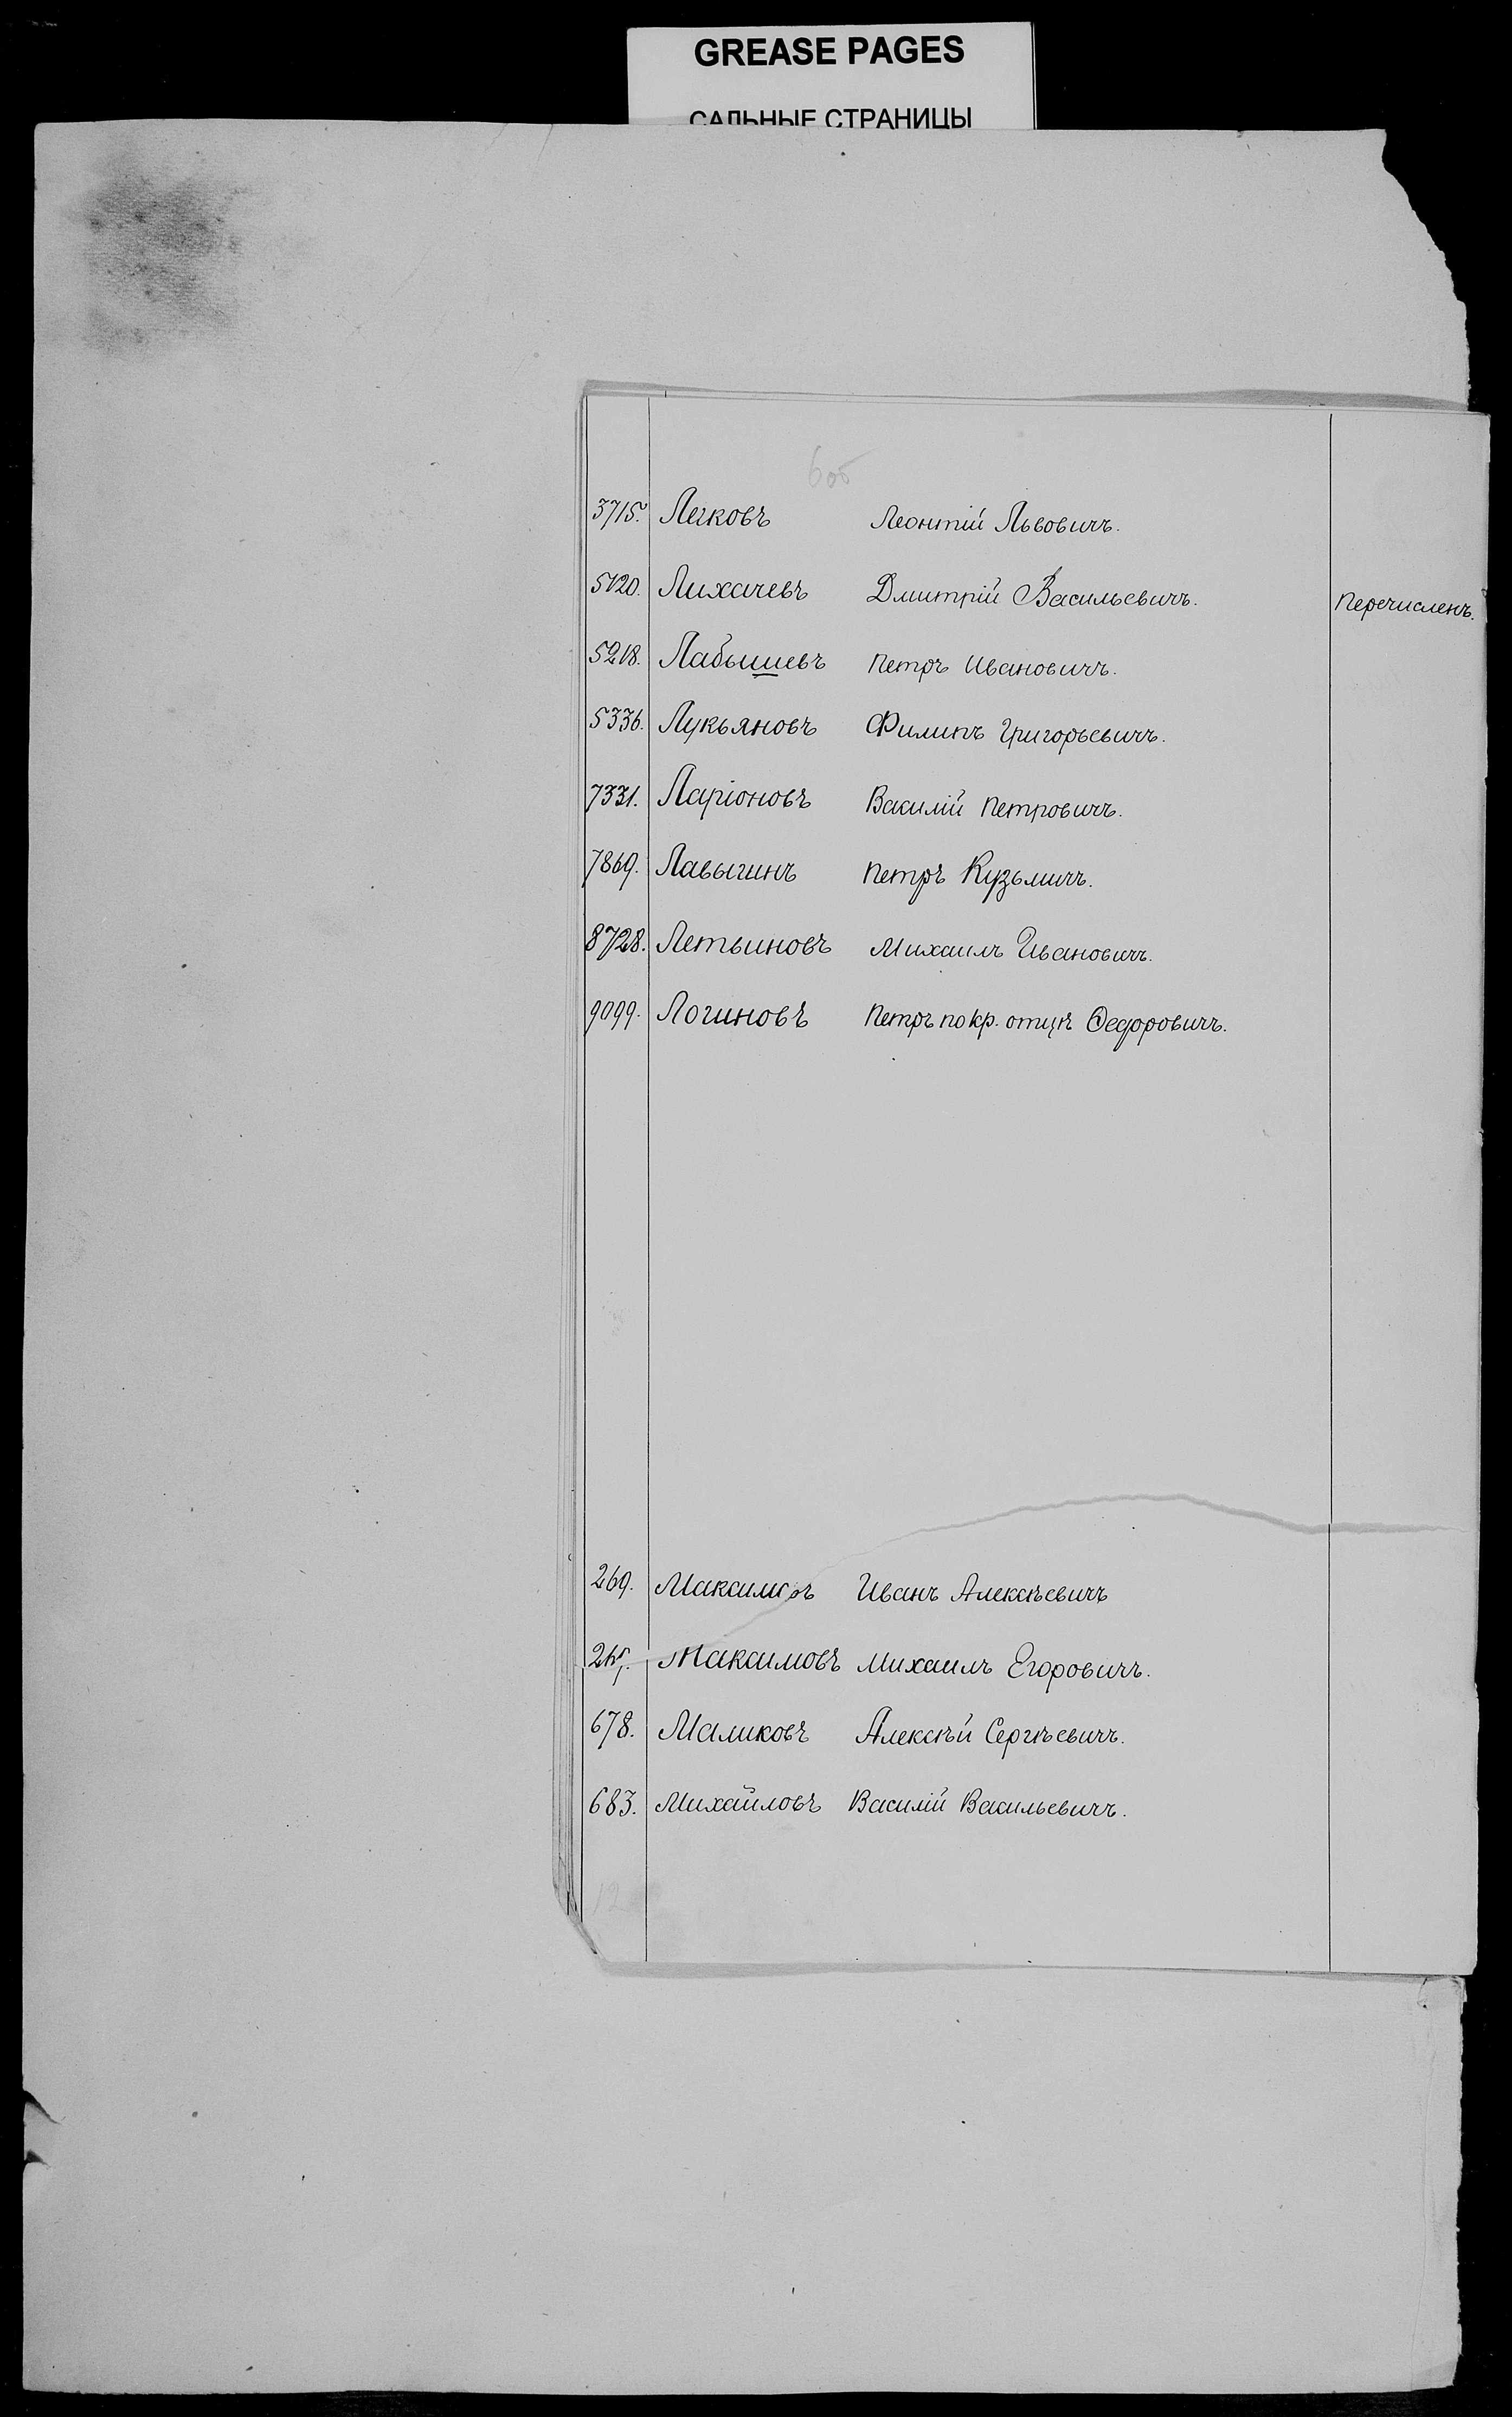 GREASE PAGES
САЛЬНЫЕ СТРАНИЦЫ
6об
3715. Легковъ Леонтій Львовичъ.
5120. Лихачевъ Дмитрій Васильевичъ. Перечисленъ.
5218. Лабышевъ Петръ Ивановичъ.
5336. Лукьяновъ Филипъ Григорьевичъ.
7331. Ларіоновъ Василій Петровичъ.
7869. Лавыгинъ Петръ Кузьмичъ.
8728. Летьиновъ Михаилъ Ивановичъ.
9099. Логиновъ Петръ по кр. отцѣ Ѳедоровичъ.
269. Максимовъ Иванъ Алексѣевичъ
Максимовъ Михаилъ Егоровичъ.
678. Маликовъ Алексѣй Сергѣевичъ.
683. Михайловъ Василій Васильевичъ.